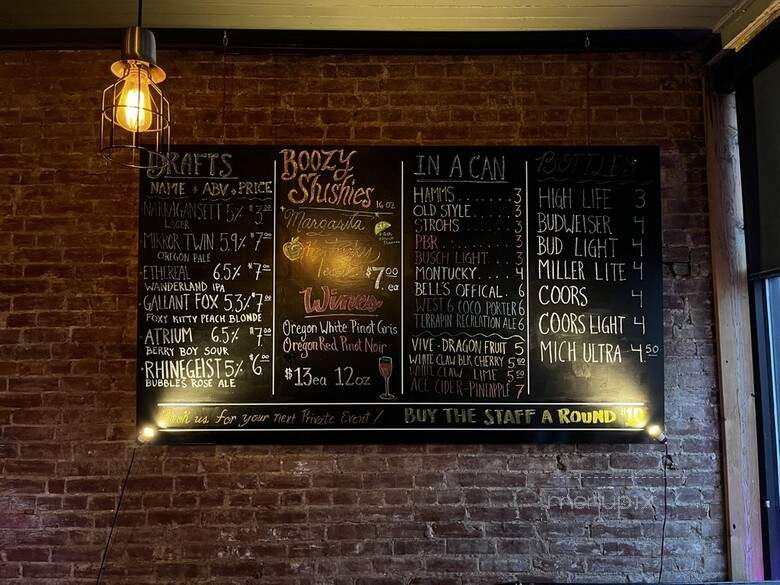 DRAFTS
NAME • ABV • PRICE
NARRAGANSETT 5% $3
LAGER
MIRROR TWIN 5.9% $7.00
OREGON PALE
ETHEREAL 6.5% $7.00
WANDERLAND IPA
GALLANT FOX 5.3% $7.00
FOXY KITTY PEACH BLONDE
ATRIUM 6.5% $7.00
BERRY BOY SOUR
RHINEGEIST 5% $6.00
BUBBLES ROSE ALE
BOOZY
Slushies
16 OZ
Margarita
$7.00
ea
Wines
Oregon White Pinot Gris
Oregon Red Pinot Noir
$13ea 12oz
IN A CAN
HAMMS....... 3
OLD STYLE...... 3
STROHS........ 3
PBR........ 3
BUSCH LIGHT.... 3
MONTUCKY.... 4
BELL'S OFFICAL. 6
WEST 6 COCO PORTER 6
TERRAPIN RECREATION ALE 6
VIVE-DRAGON FRUIT 5
WHITE CLAW BLK CHERRY 5.50
WHITE CLAW LIME 5.50
ACE CIDER-PINEAPPLE 7
BOTTLES
HIGH LIFE 3
BUDWEISER 4
BUD LIGHT 4
MILLER LITE 4
COORS 4
COORS LIGHT 4
MICH ULTRA 4.50
Book us for your next Private Event!
BUY THE STAFF A ROUND $10
menupix